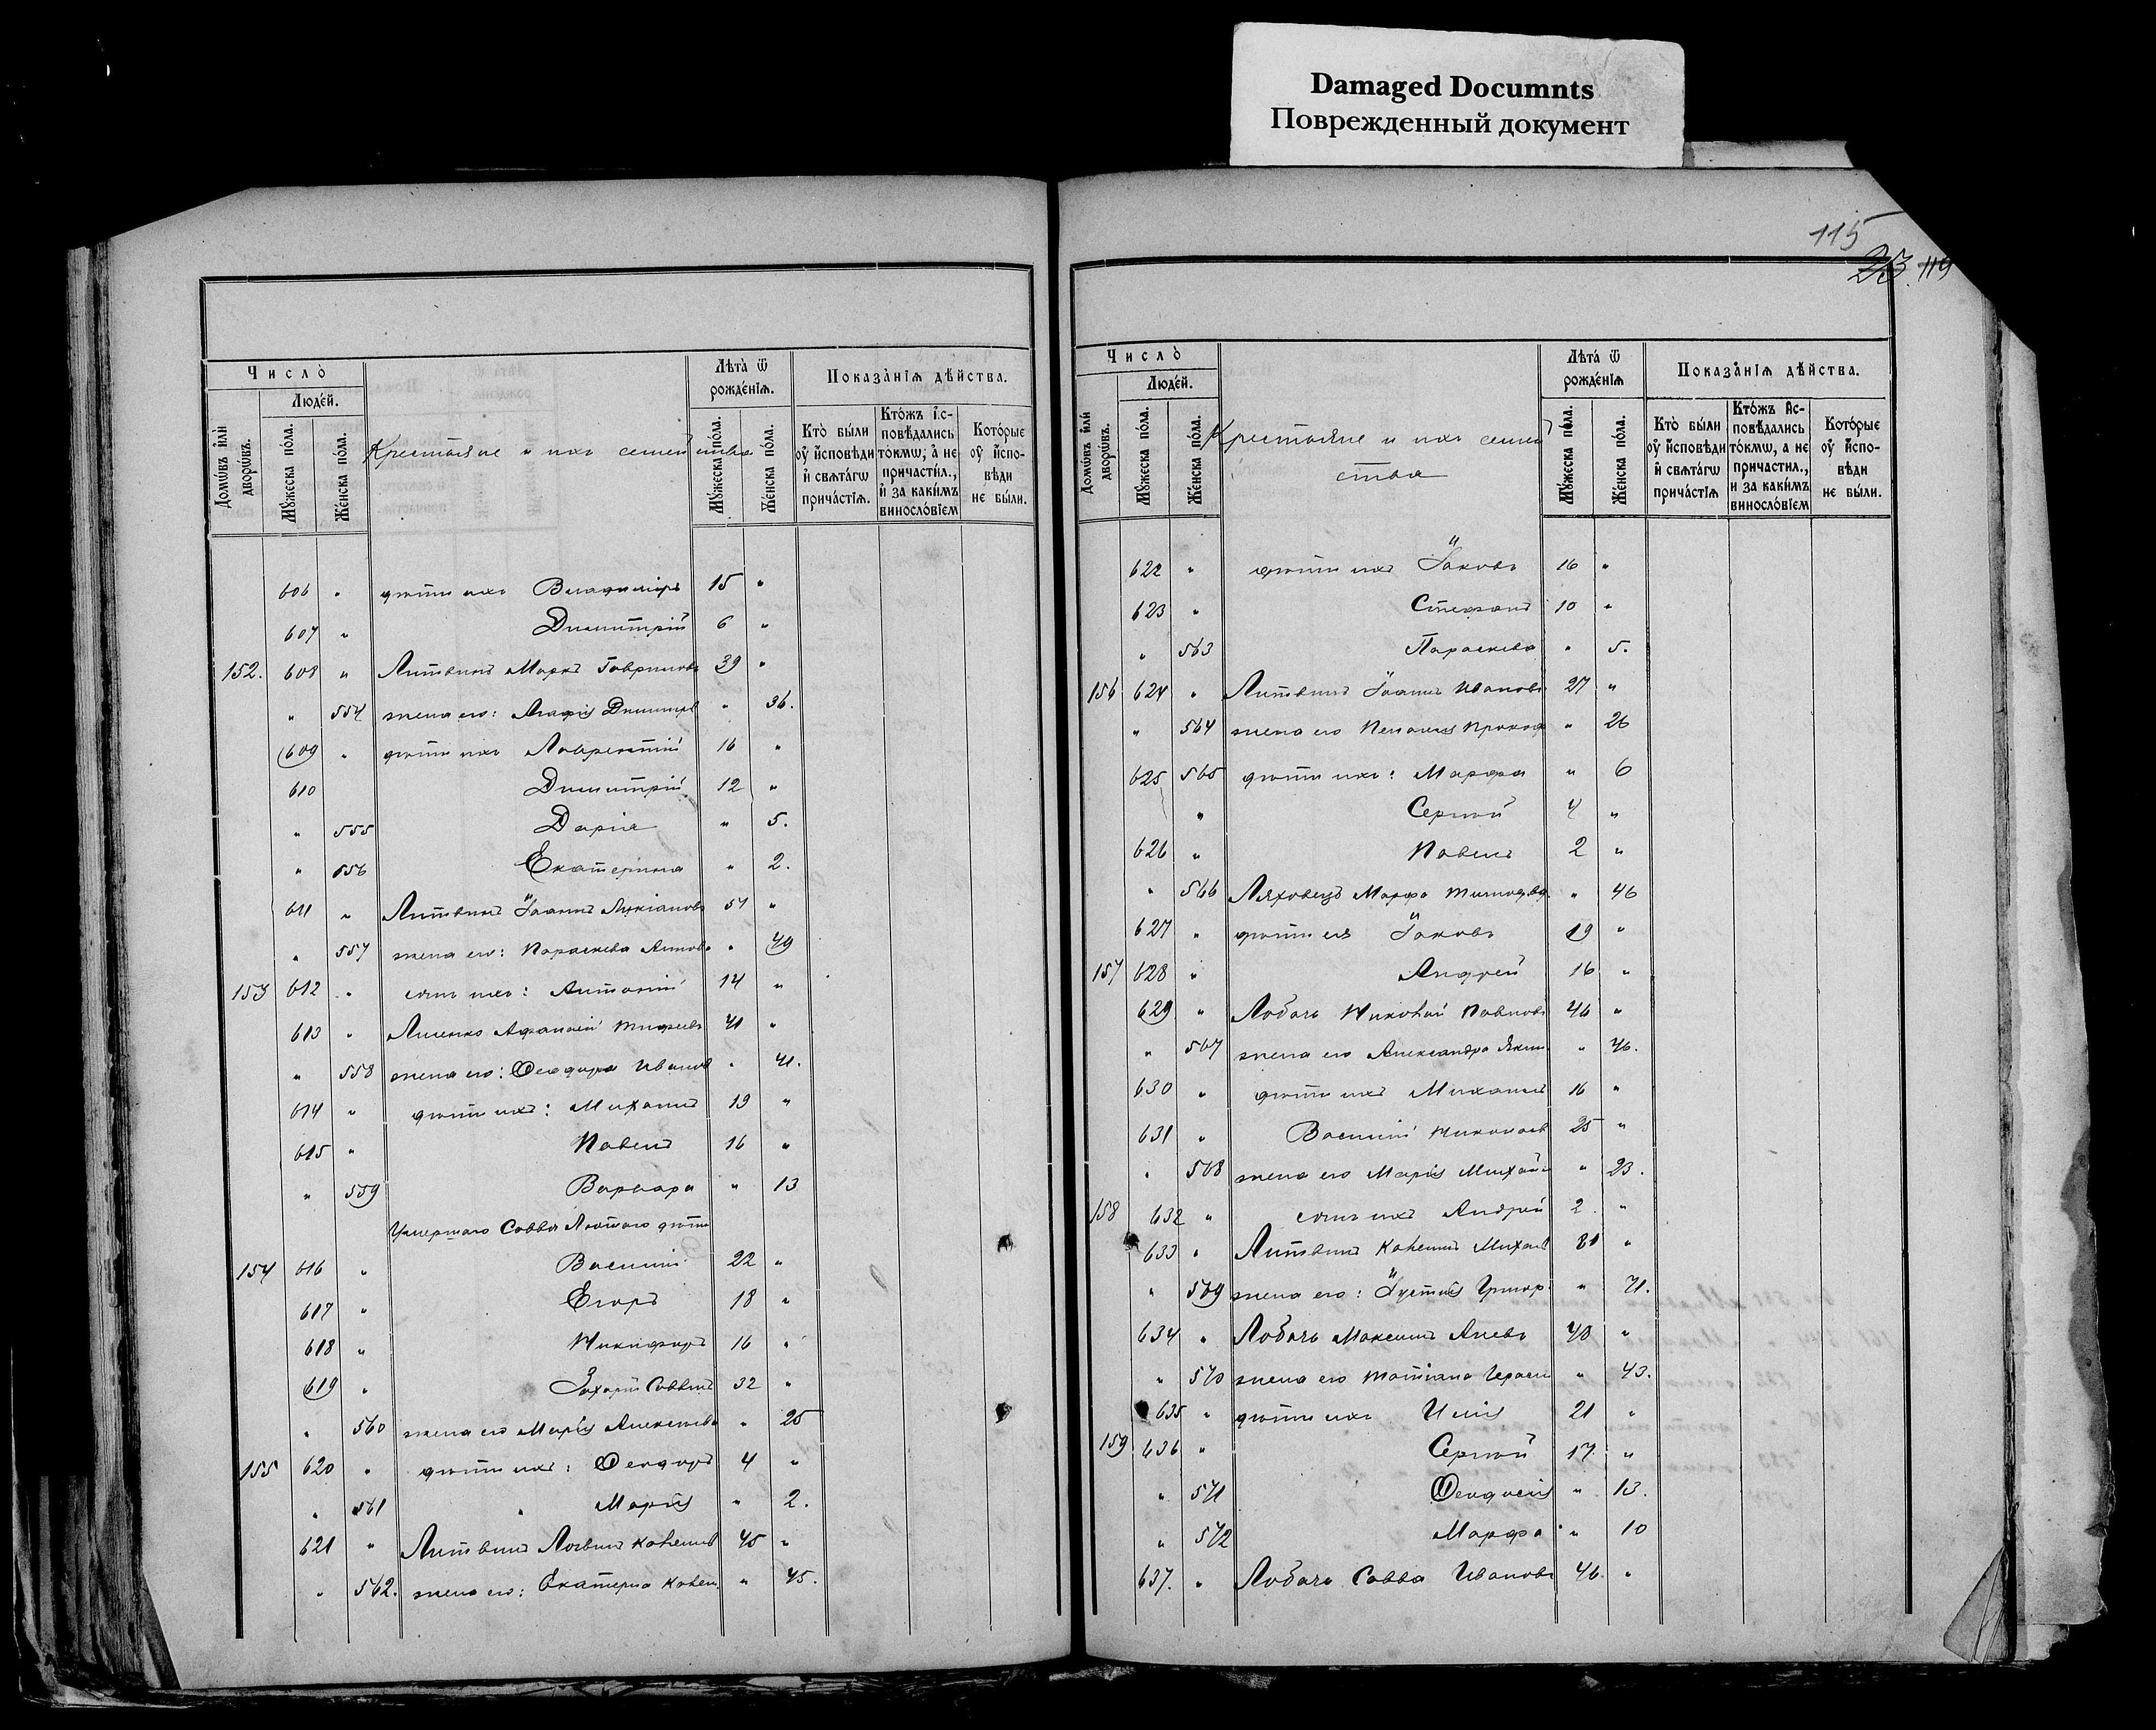 Damaged Documnts
Поврежденный документ
115
23. 119
Число̀
Люде́й.
Домѡ́въ и҆лѝ дворѡ́въ.
Мꙋ́жеска по́ла.
Же́нска по́ла.
Крестьяне и ихъ семейства
Лѣ́та ѿ рожде́нїѧ.
Мꙋ́жеска по́ла.
Же́нска по́ла.
Показа̑нїѧ дѣ́йства.
Кто̀ бы́ли ᲂу҆ и҆́сповѣди и҆ свѧта́гѡ прича́стїѧ.
Кто́жъ і҆с-повѣ́дались то́кмѡ; а҆ не причасти́л., и҆ за каки́мъ винослові́емъ
Кото́рые ᲂу҆ и҆́спо-вѣди не бы́ли.
606 " дѣти ихъ Владиміръ 15 "
607 " Димитрій 6 "
152. 608 " Литвинъ Маркъ Гавриловъ 39 "
" 554 жена его: Агафія Димитр " 36.
609 " дѣти ихъ Лаврентій 16 "
610 Димитрій 12 "
" 555 Дарія " 5.
" 556 Екатерина " 2.
611 " Литвинъ Іоаннъ Лукіановъ 51 "
" 557 жена его: Параскева " 49
153 612 " сынъ ихъ: Антоній 14 "
613 " Лисенко Афанасій 41 "
" 558 жена его: Ѳеодора Иванов " 41.
614 " дѣти ихъ: Михаилъ 19 "
615 " Павелъ 16 "
" 559 Варвара " 13
Умершаго Саввы Лютаго дѣти
154 616 " Василій 22 "
617 " Егоръ 18 "
618 " Никифоръ 16 "
619 " Захарій Саввинъ 32 "
" 560 жена его Марія Алексѣева " 25
155 620 " дѣти ихъ: Ѳеодоръ 4 "
" 561 " Марія " 2.
621 " Литвинъ Логвинъ 45 "
" 562. жена его: Екатерина " 45.
Число̀
Люде́й.
Домѡ́въ и҆лѝ дворѡ́въ.
Мꙋ́жеска по́ла.
Же́нска по́ла.
Крестьяне и ихъ семей
ства
Лѣ́та ѿ рожде́нїѧ
Мꙋ́жеска по́ла.
Же́нска по́ла.
Показа̑нїѧ дѣ́йства.
Кто̀ бы́ли ᲂу҆ и҆́сповѣди и҆ свѧта́гѡ прича́стїѧ
Кто́жъ и҆с-повѣ́дались то́кмѡ, а не причастил., и за каки́мъ винослові́емъ
Кото́рые ᲂу҆ и҆́спо-вѣди не бы́ли.
622 " дѣти ихъ Іаковъ 16 "
623 " Стефанъ 10 "
" 563 Параскева " 5.
156 624 " Литвинъ Іоаннъ Ивановъ 27 "
" 564 жена его Пелагія Прокоф " 26
625 565 дѣти ихъ: Марфа " 6
" Сергій 4 "
626 " Павелъ 2 "
" 566 Ляховецъ Марфа " 46
627 " дѣти ея Іаковъ 19 "
157 628 " Андрей 16 "
629 " Лобачъ Николай Павловъ 46 "
" 567 жена его Александра Яким " 46.
630 " дѣти ихъ Михаилъ 16 "
631 " Василій Николаев 25 "
" 568 жена его Марія Михай " 23.
158 632 " сынъ ихъ Андрей 2 "
633 " Литвинъ Михаил 81 "
" 569 жена его: Іустинія Григор " 71.
634 " Лобачъ Максимъ 48 "
" 570 жена его Татіана Герасим " 43.
635 " дѣти ихъ Илія 21 "
159 636 " Сергій 17 "
" 571 Ѳеодосія " 13.
" 572 Марфа " 10
637. " Лобачъ Савва Ивановъ 46 "